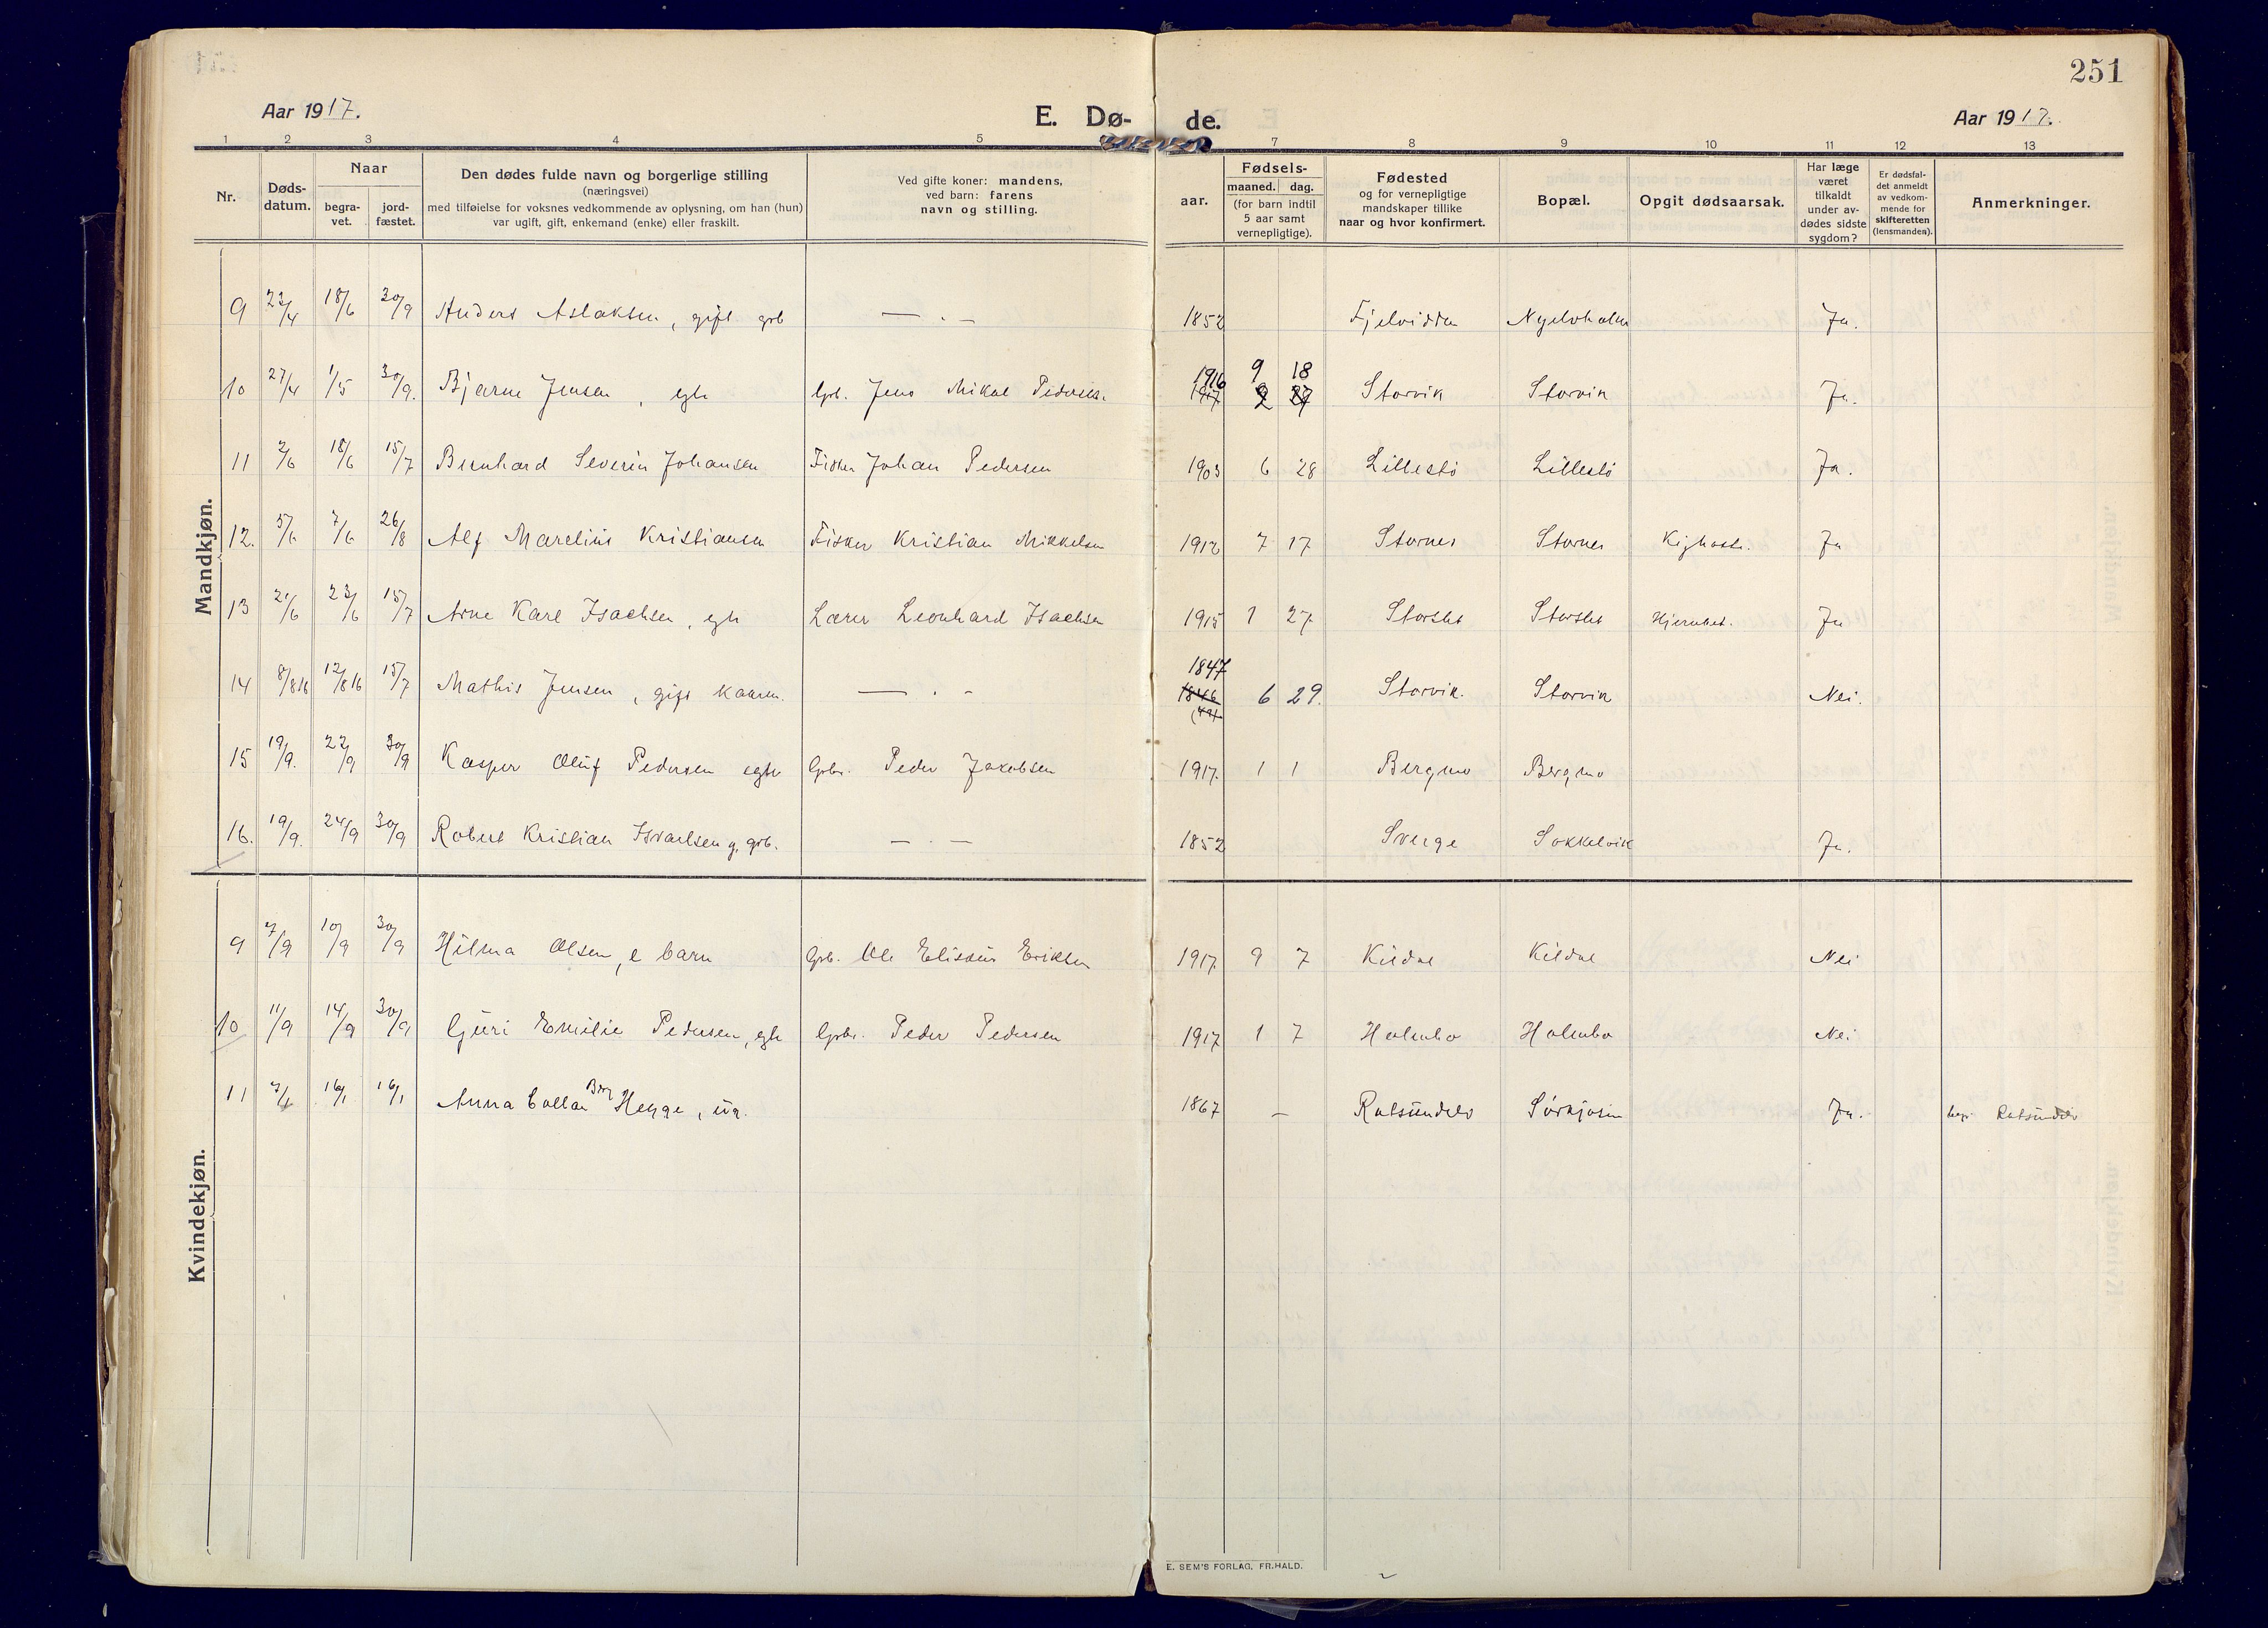 251
Aar 1917.
E. Dø-
de.
Aar 1917.
1 2 3 4 5 7 8 9 10 11 12 13
Nr.
Døds-
datum.
Naar
begra-
vet.
jord-
fæstet.
Den dødes fulde navn og borgerlige stilling
(næringsvei)
med tilføielse for voksnes vedkommende av oplysning, om han (hun)
var ugift, gift, enkemand (enke) eller fraskilt.
Ved gifte koner: mandens,
ved barn: farens
navn og stilling.
aar.
Fødsels-
maaned. dag.
(for barn indtil
5 aar samt
vernepligtige).
Fødested
og for vernepligtige
mandskaper tillike
naar og hvor konfirmert.
Bopæl.
Opgit dødsaarsak.
Har læge
været
tilkaldt
under av-
dødes sidste
sygdom?
Er dødsfal-
det anmeldt
av vedkom-
mende for
skifteretten
(lensmanden).
Anmerkninger.
Mandkjøn.
9 23/4 18/6 30/9 Anders Aslaksen, gift grb — . — 1852 Fjelvidda Nyelvholm Ja.
10 27/4 1/5 30/9. Bjarne Jensen, egte Grb. Jens Mikal Pedersen. 1916 9 18 Storvik Storvik Ja.
11 2/6 18/6 15/7 Bernhard Severin Johansen Fisker Johan Pedersen 1903 6 28 Lilleslö Lilleslö Ja.
12. 5/6 7/6 26/8 Alf Marelius Kristiansen Fisker Kristian Mikkelsen 1912 7 17 Stornes Stornes Kighoste. Ja
13 21/6 23/6 15/7 Arne Karl Isachsen, egte Lærer Leonhard Isachsen 1915 1 27. Storslet Storslet Hjernebet. Ja
14 8/8 16 12/8 16 15/7 Mathis Jensen, gift kaarm. — . - 1847 1846 6 29. Storvik. Storvik Nei.
15 19/9. 22/9 30/9 Kasper Oluf Pedersen egte Grbr. Peder Jakobsen 1917. 1 1 Bergmo Bergmo
16. 19/9. 24/9 30/9 Robert Kristian Israelsen g. grb. — . — 1852 Sverge Sokkelvik Ja.
Kvindekjøn.
9 7/9 10/9 30/9 Hilma Olsen, e barn Grb. Ole Eliseus Eriksen 1917. 9 7 Kildal Kildal Nei
10 11/9 14/9 30/9 Guri Emilie Pedersen, egte Grbr. Peder Pedersen 1917 1 7 Holmbo Holmbo Nei
11 7/1 16/1 16/1 Anna Collan Berg Hegge, ug. 1867 — Rotsundelv Sörkjosen Ja. begr. Rotsundelv
E. SEM'S FORLAG, FR.HALD.